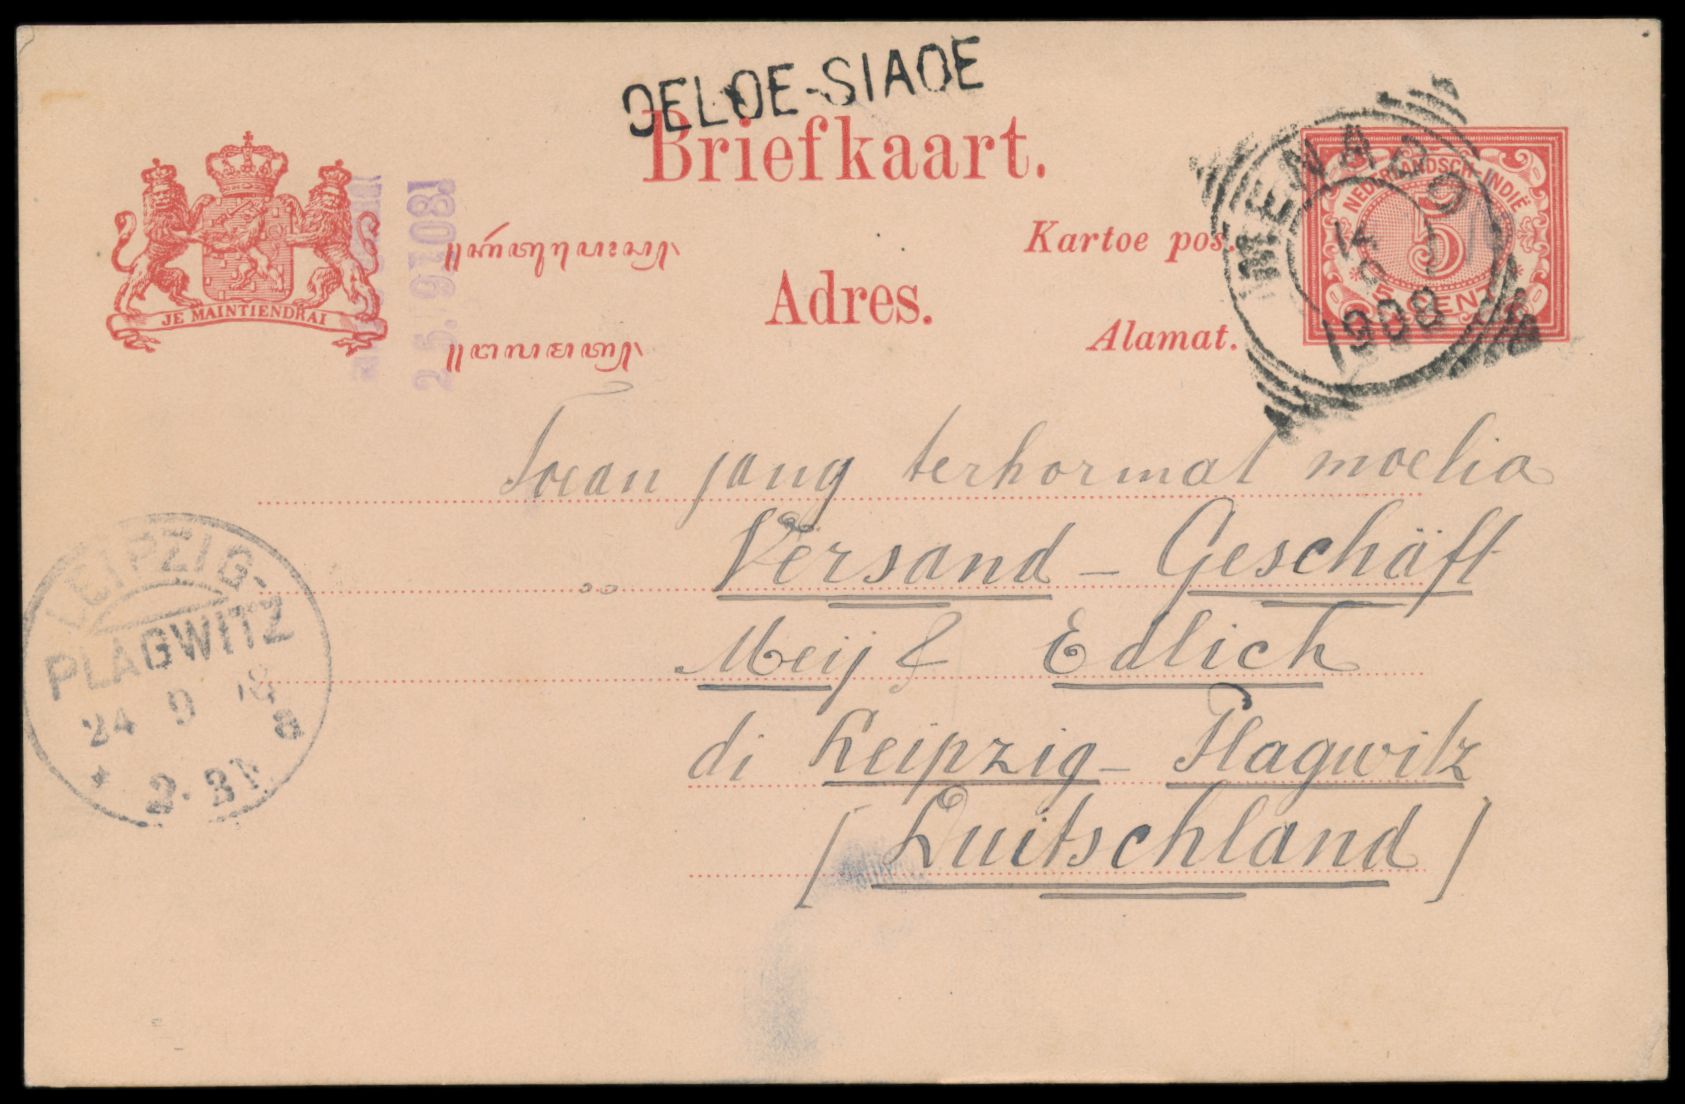 OELOE-SIAOE
Briefkaart.
Kartoe pos.
Adres.
Alamat.
JE MAINTIENDRAI
25.9.08
MENADO
1908
NEDERLANDSCH-INDIË
5
5 CENT
Toean jang terhormat moelia
Versand - Geschäft
Meij & Edlich
di Leipzig - Plagwitz
[Duitschland]
LEIPZIG-
PLAGWITZ
24 9 08
a